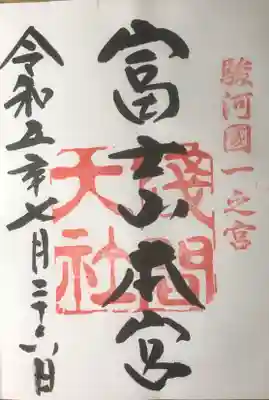 駿河國一之宮
富士山本宮
淺間大社
令和五年七月二十六日